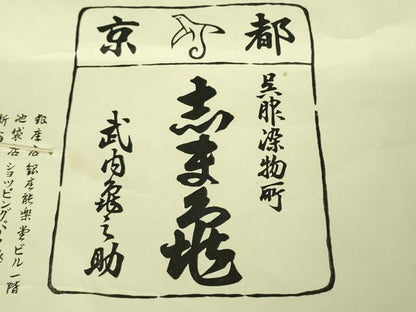 京都
呉服染物所
志ま亀
武内亀之助
銀座店 銀座能楽堂ビル一階
池袋店 ショッピングパ